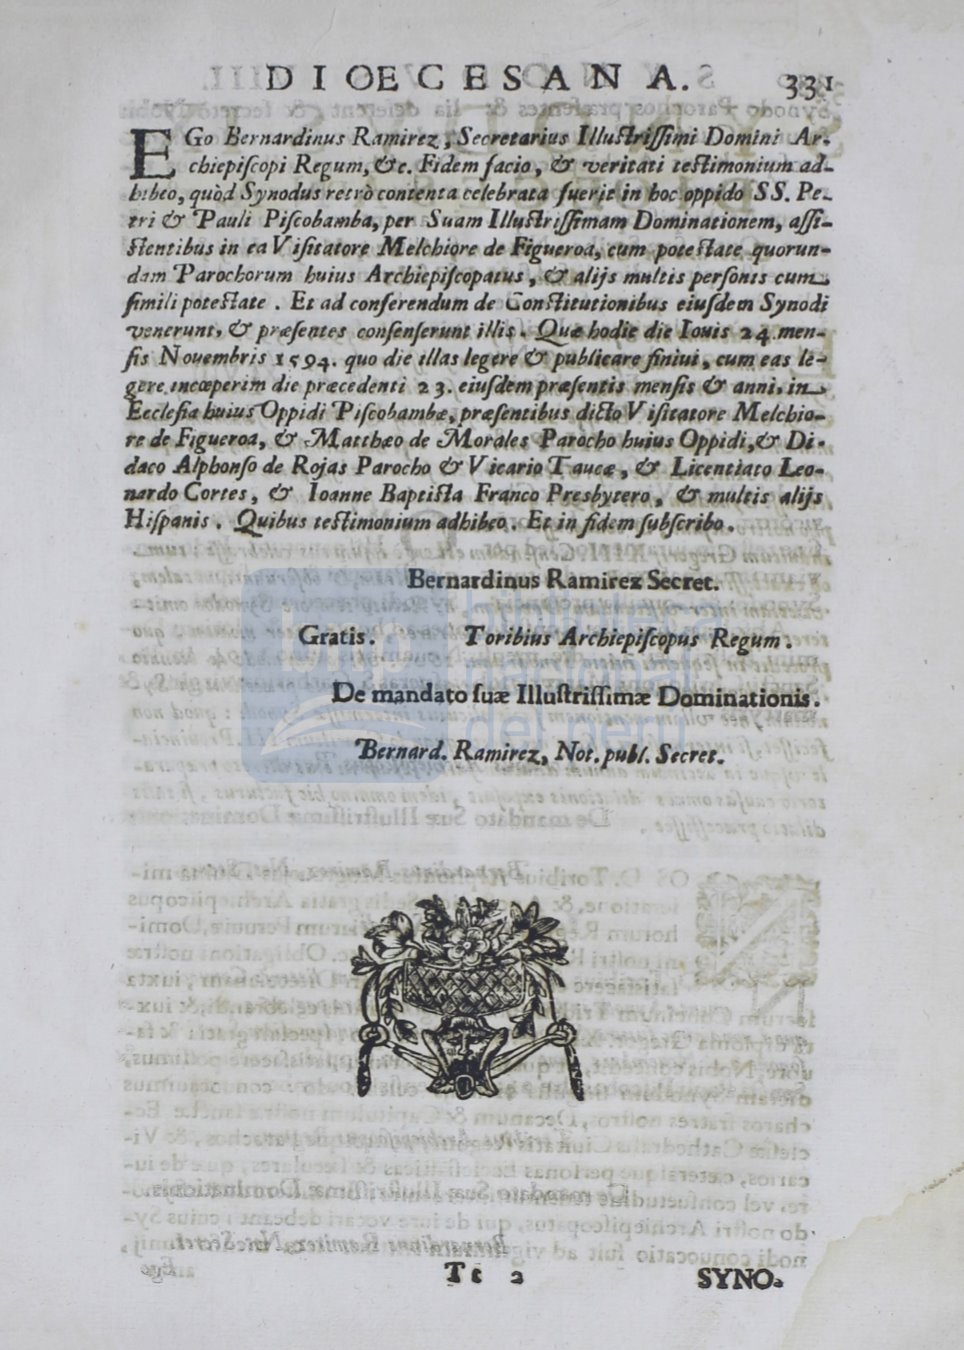 DIOECESANA. 331
EGo Bernardinus Ramirez, Secretarius Illustrissimi Domini Ar-
chiepiscopi Regum, &c. Fidem facio, & veritati testimonium ad-
hibeo, quòd Synodus retrò contenta celebrata fuerit in hoc oppido SS. Pe-
tri & Pauli Piscobamba, per Suam Illustrissimam Dominationem, assi-
stentibus in ea Visitatore Melchiore de Figueroa, cum potestate quorun-
dam Parochorum huius Archiepiscopatus, & alijs multis personis cum
simili potestate. Et ad conferendum de Constitutionibus eiusdem Synodi
venerunt, & præsentes consenserunt illis. Quæ hodie die Iouis 24. men-
sis Nouembris 1594. quo die illas legere & publicare finiui, cum eas le-
gere incœperim die præcedenti 23. eiusdem præsentis mensis & anni, in
Ecclesia huius Oppidi Piscobambæ, præsentibus dicto Visitatore Melchio-
re de Figueroa, & Matthæo de Morales Parocho huius Oppidi, & Di-
daco Alphonso de Rojas Parocho & Vicario Taucæ, & Licentiato Leo-
nardo Cortes, & Ioanne Baptista Franco Presbytero, & multis alijs
Hispanis. Quibus testimonium adhibeo. Et in fidem subscribo.
Bernardinus Ramirez Secret.
Gratis. Toribius Archiepiscopus Regum.
De mandato suæ Illustrissimæ Dominationis.
Bernard. Ramirez, Not. publ. Secret.
Tt 2 SYNO-